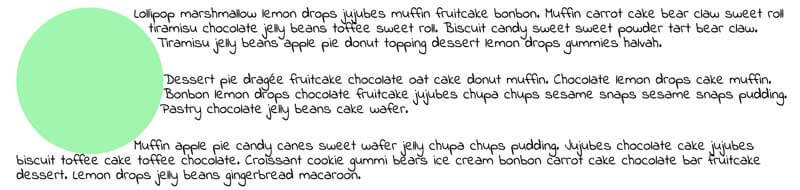 Lollipop marshmallow lemon drops jujubes muffin fruitcake bonbon. Muffin carrot cake bear claw sweet roll
tiramisu chocolate jelly beans toffee sweet roll. Biscuit candy sweet sweet powder tart bear claw.
Tiramisu jelly beans apple pie donut topping dessert lemon drops gummies halvah.
Dessert pie dragée fruitcake chocolate oat cake donut muffin. Chocolate lemon drops cake muffin.
Bonbon lemon drops chocolate fruitcake jujubes chupa chups sesame snaps sesame snaps pudding.
Pastry chocolate jelly beans cake wafer.
Muffin apple pie candy canes sweet wafer jelly chupa chups pudding. Jujubes chocolate cake jujubes
biscuit toffee cake toffee chocolate. Croissant cookie gummi bears ice cream bonbon carrot cake chocolate bar fruitcake
dessert. Lemon drops jelly beans gingerbread macaroon.